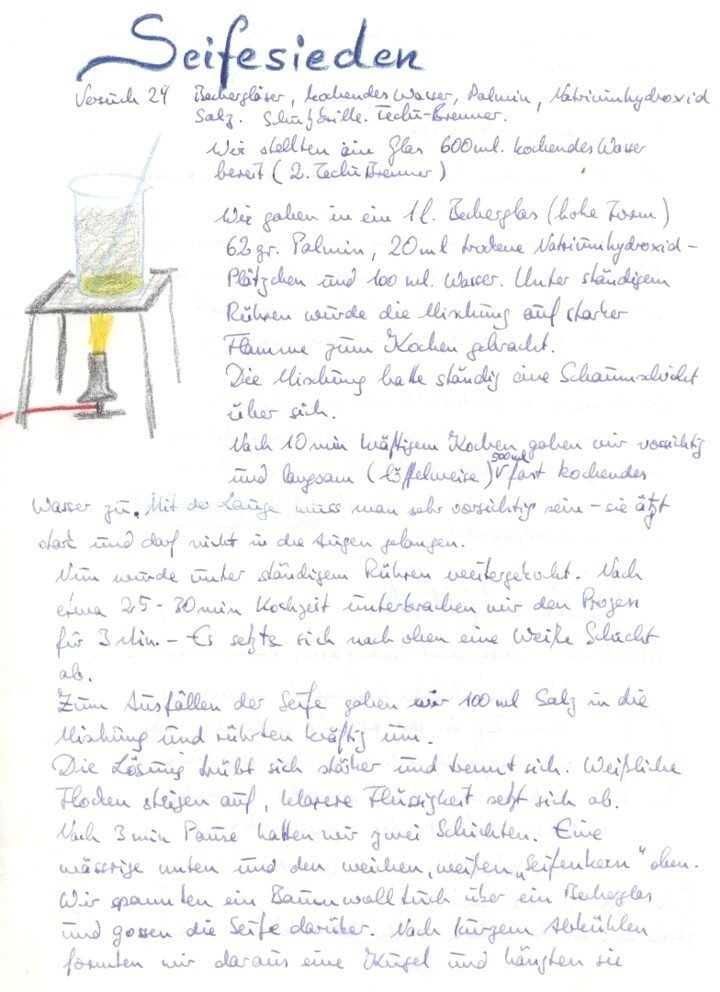 Seifesieden
Versuch 24 Bechergläser, kochendes Wasser, Palmin, Natriumhydroxid
Salz. Schutzbrille. Teclu-Brenner.
Wir stellten ein Glas 600 ml. kochendes Wasser
bereit (2. Teclu Brenner)
Wir gaben in ein 1 l. Becherglas (hohe Form)
62 gr. Palmin, 20 ml trockene Natriumhydroxid-
Plätzchen und 100 ml. Wasser. Unter ständigem
Rühren wurde die Mischung auf starker
Flamme zum Kochen gebracht.
Die Mischung hatte ständig eine Schaumschicht
über sich.
Nach 10 min kräftigem Kochen gaben wir vorsichtig
und langsam (löffelweise) 500 ml fast kochendes
Wasser zu. Mit der Lauge muss man sehr vorsichtig sein - sie ätzt
stark und darf nicht in die Augen gelangen.
Nun wurde unter ständigem Rühren weitergekocht. Nach
etwa 25-30 min Kochzeit unterbrachen wir den Prozess
für 3 Min. - Es setzte sich nach oben eine Weiße Schicht
ab.
Zum Ausfällen der Seife gaben wir 100 ml Salz in die
Mischung und rührten kräftig um.
Die Lösung trübt sich stärker und trennt sich. Weißliche
Flocken steigen auf, klarere Flüssigkeit setzt sich ab.
Nach 3 min Pause hatten wir zwei Schichten. Eine
wässrige unten und den weichen, weißen „Seifenkern" oben.
Wir spannten ein Baumwolltuch über ein Becherglas
und gossen die Seife darüber. Nach kurzem Abkühlen
formten wir daraus eine Kugel und hängten sie